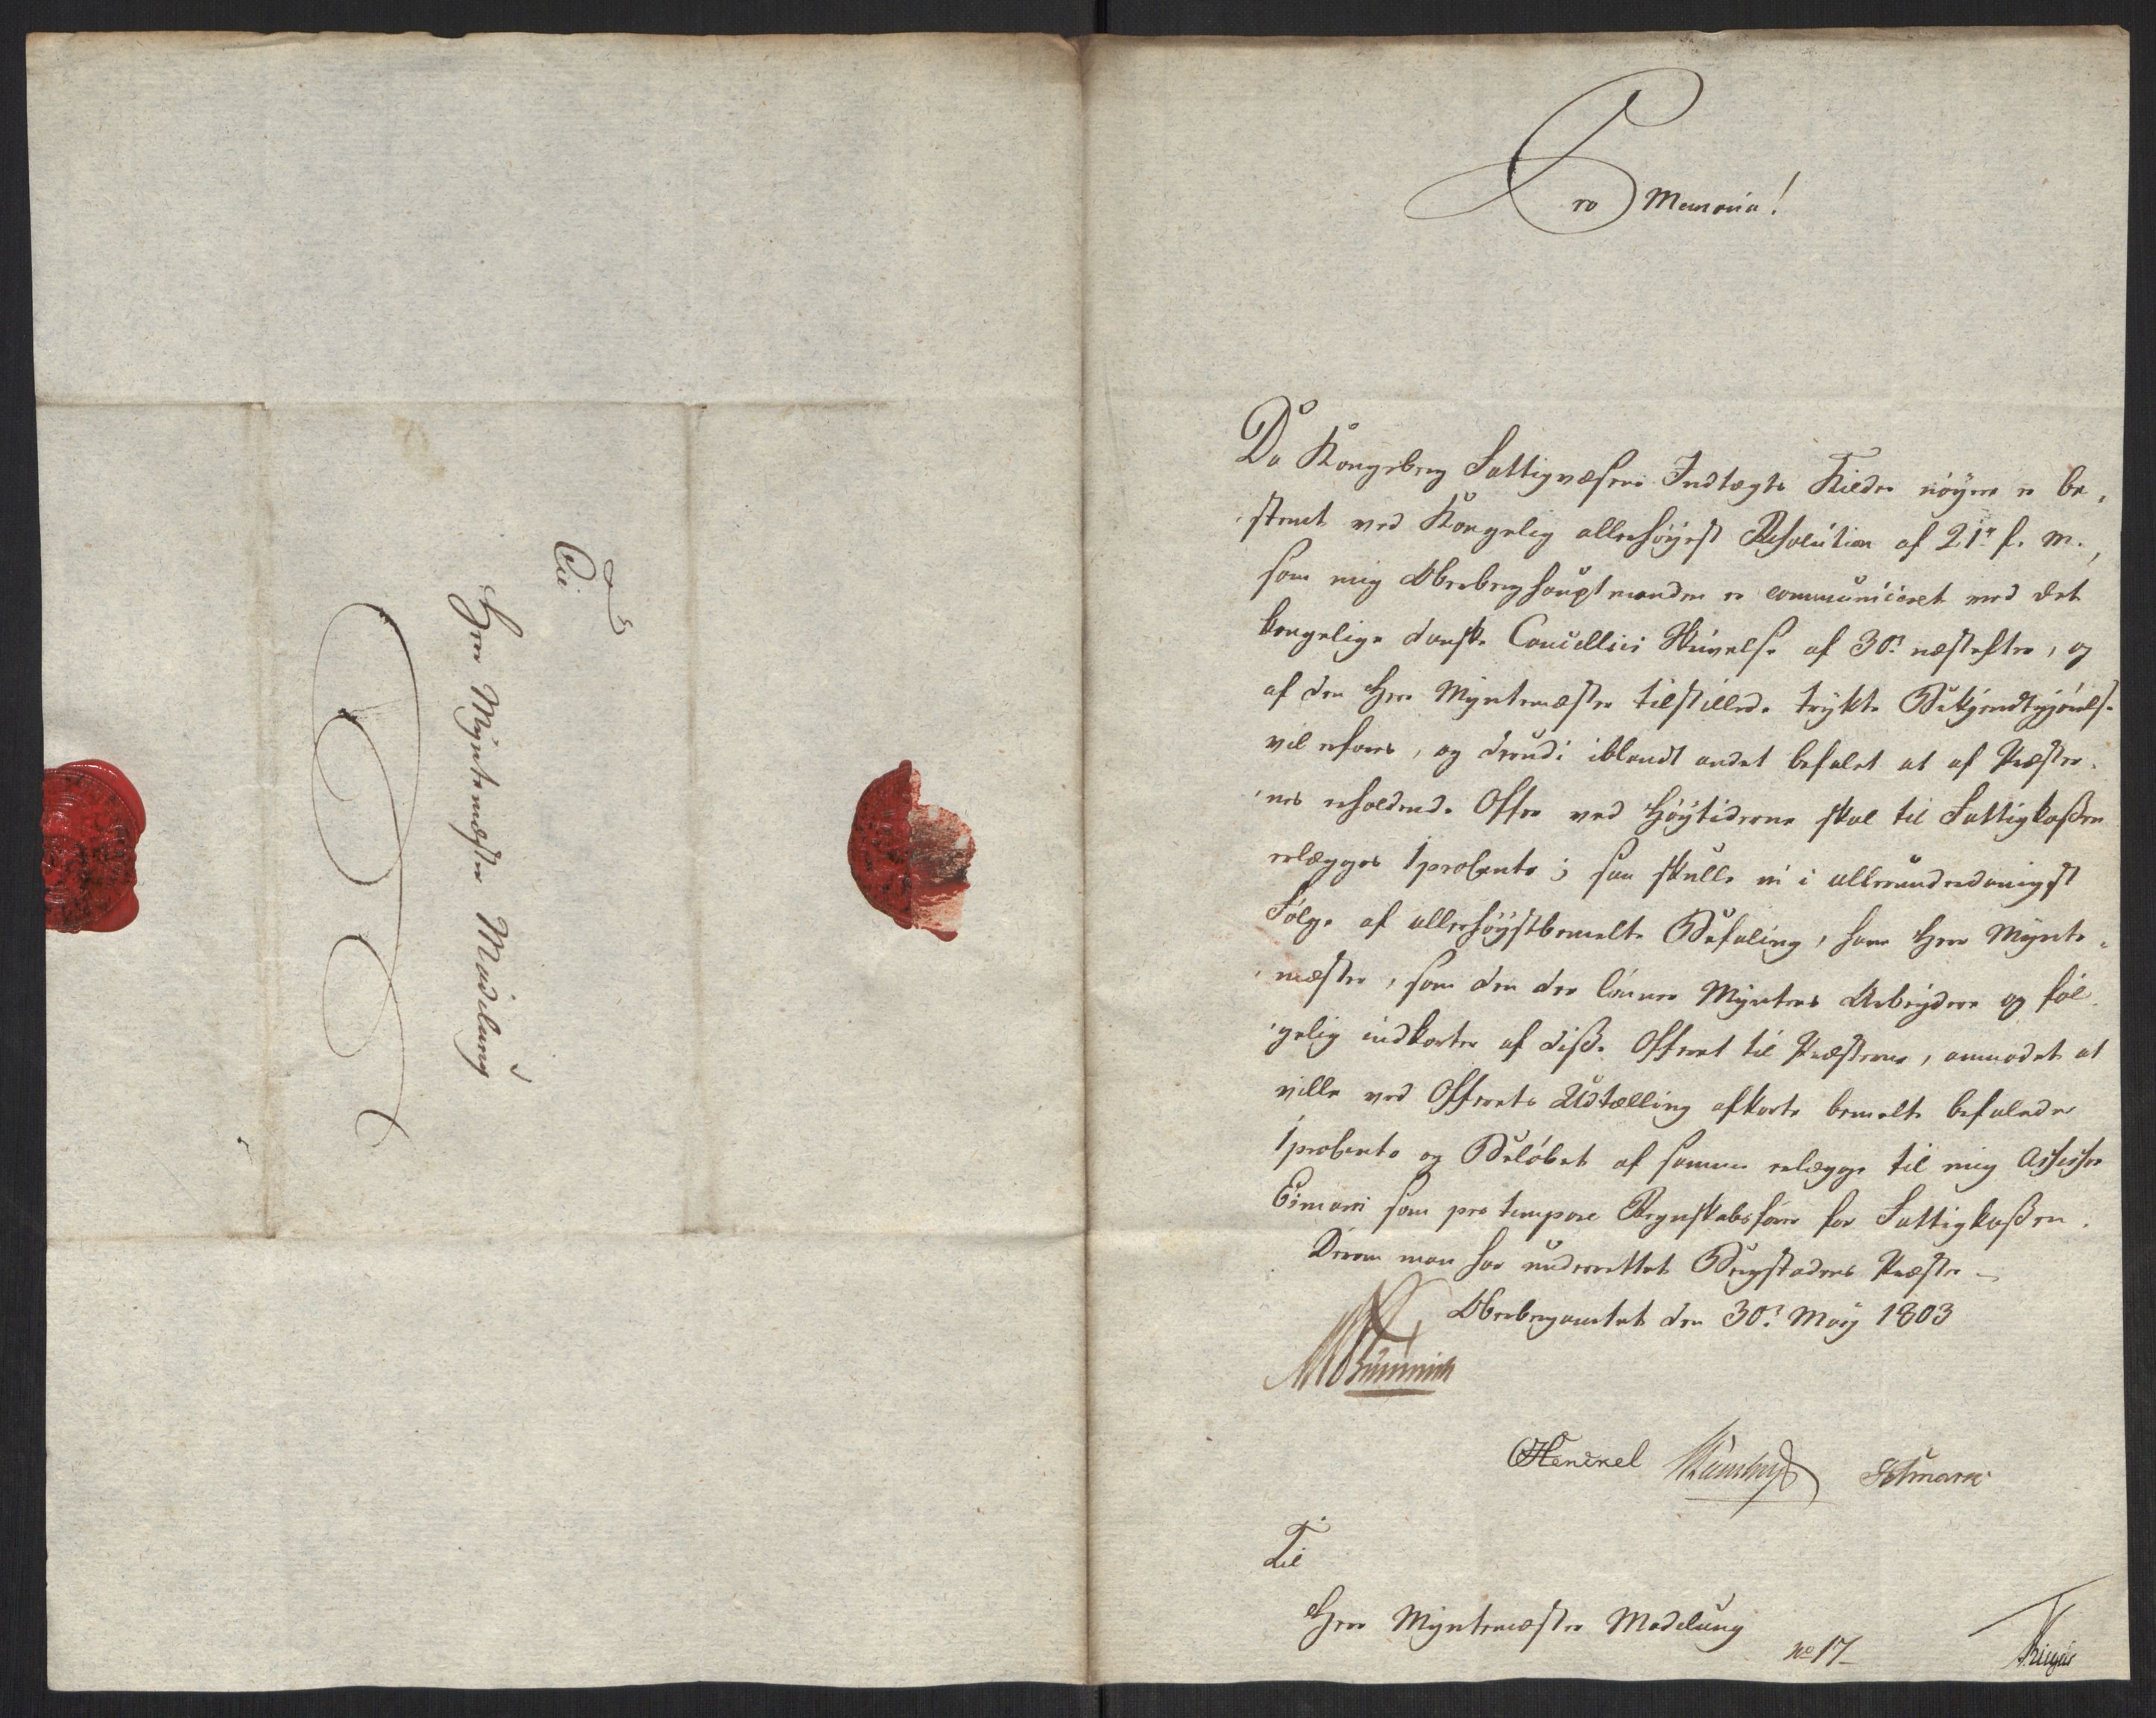 Til
Herr Myntemæster Madelung
Pro Memoria!
Da Kongsberg Fattigvæsens Indtægts Kilder nøyere er be-
stemt ved Kongelig allerhøyest Resolution af 21de f. M.,
som mig Oberberghauptmanden er communiceret med det
kongelige danske Cancellies Skrivelse af 30te næstefter, og
af den Herr Myntemæster tilstillede trykte Bekjendtgjørelse
vil erfares, og derudi iblandt andet befalet at af Præster-
nes erholdende Offer ved Høytiderne skal til Fattigkassen
erlægges 1 procento; saa skulle vi i allerunderdanigst
Følge af allerhøystbemelte Befaling, have Herr Mynte-
mæster, som den der lønner Myntens Arbeydere og føl-
gelig indkorter af disse Offeret til Præsterne, anmodet at
ville ved Offerets Udtælling afkorte bemelte befalede
1 procento og Beløbet af samme erlægge til mig Assessor
Esmark som pro tempore Regnskabsfører for Fattigkassen.
Derom man har underrettet Bergstadens Præster
Oberbergamtet den 30te May 1803
Henckel Esmark
Til
Herr Myntemæster Madelung
No 17